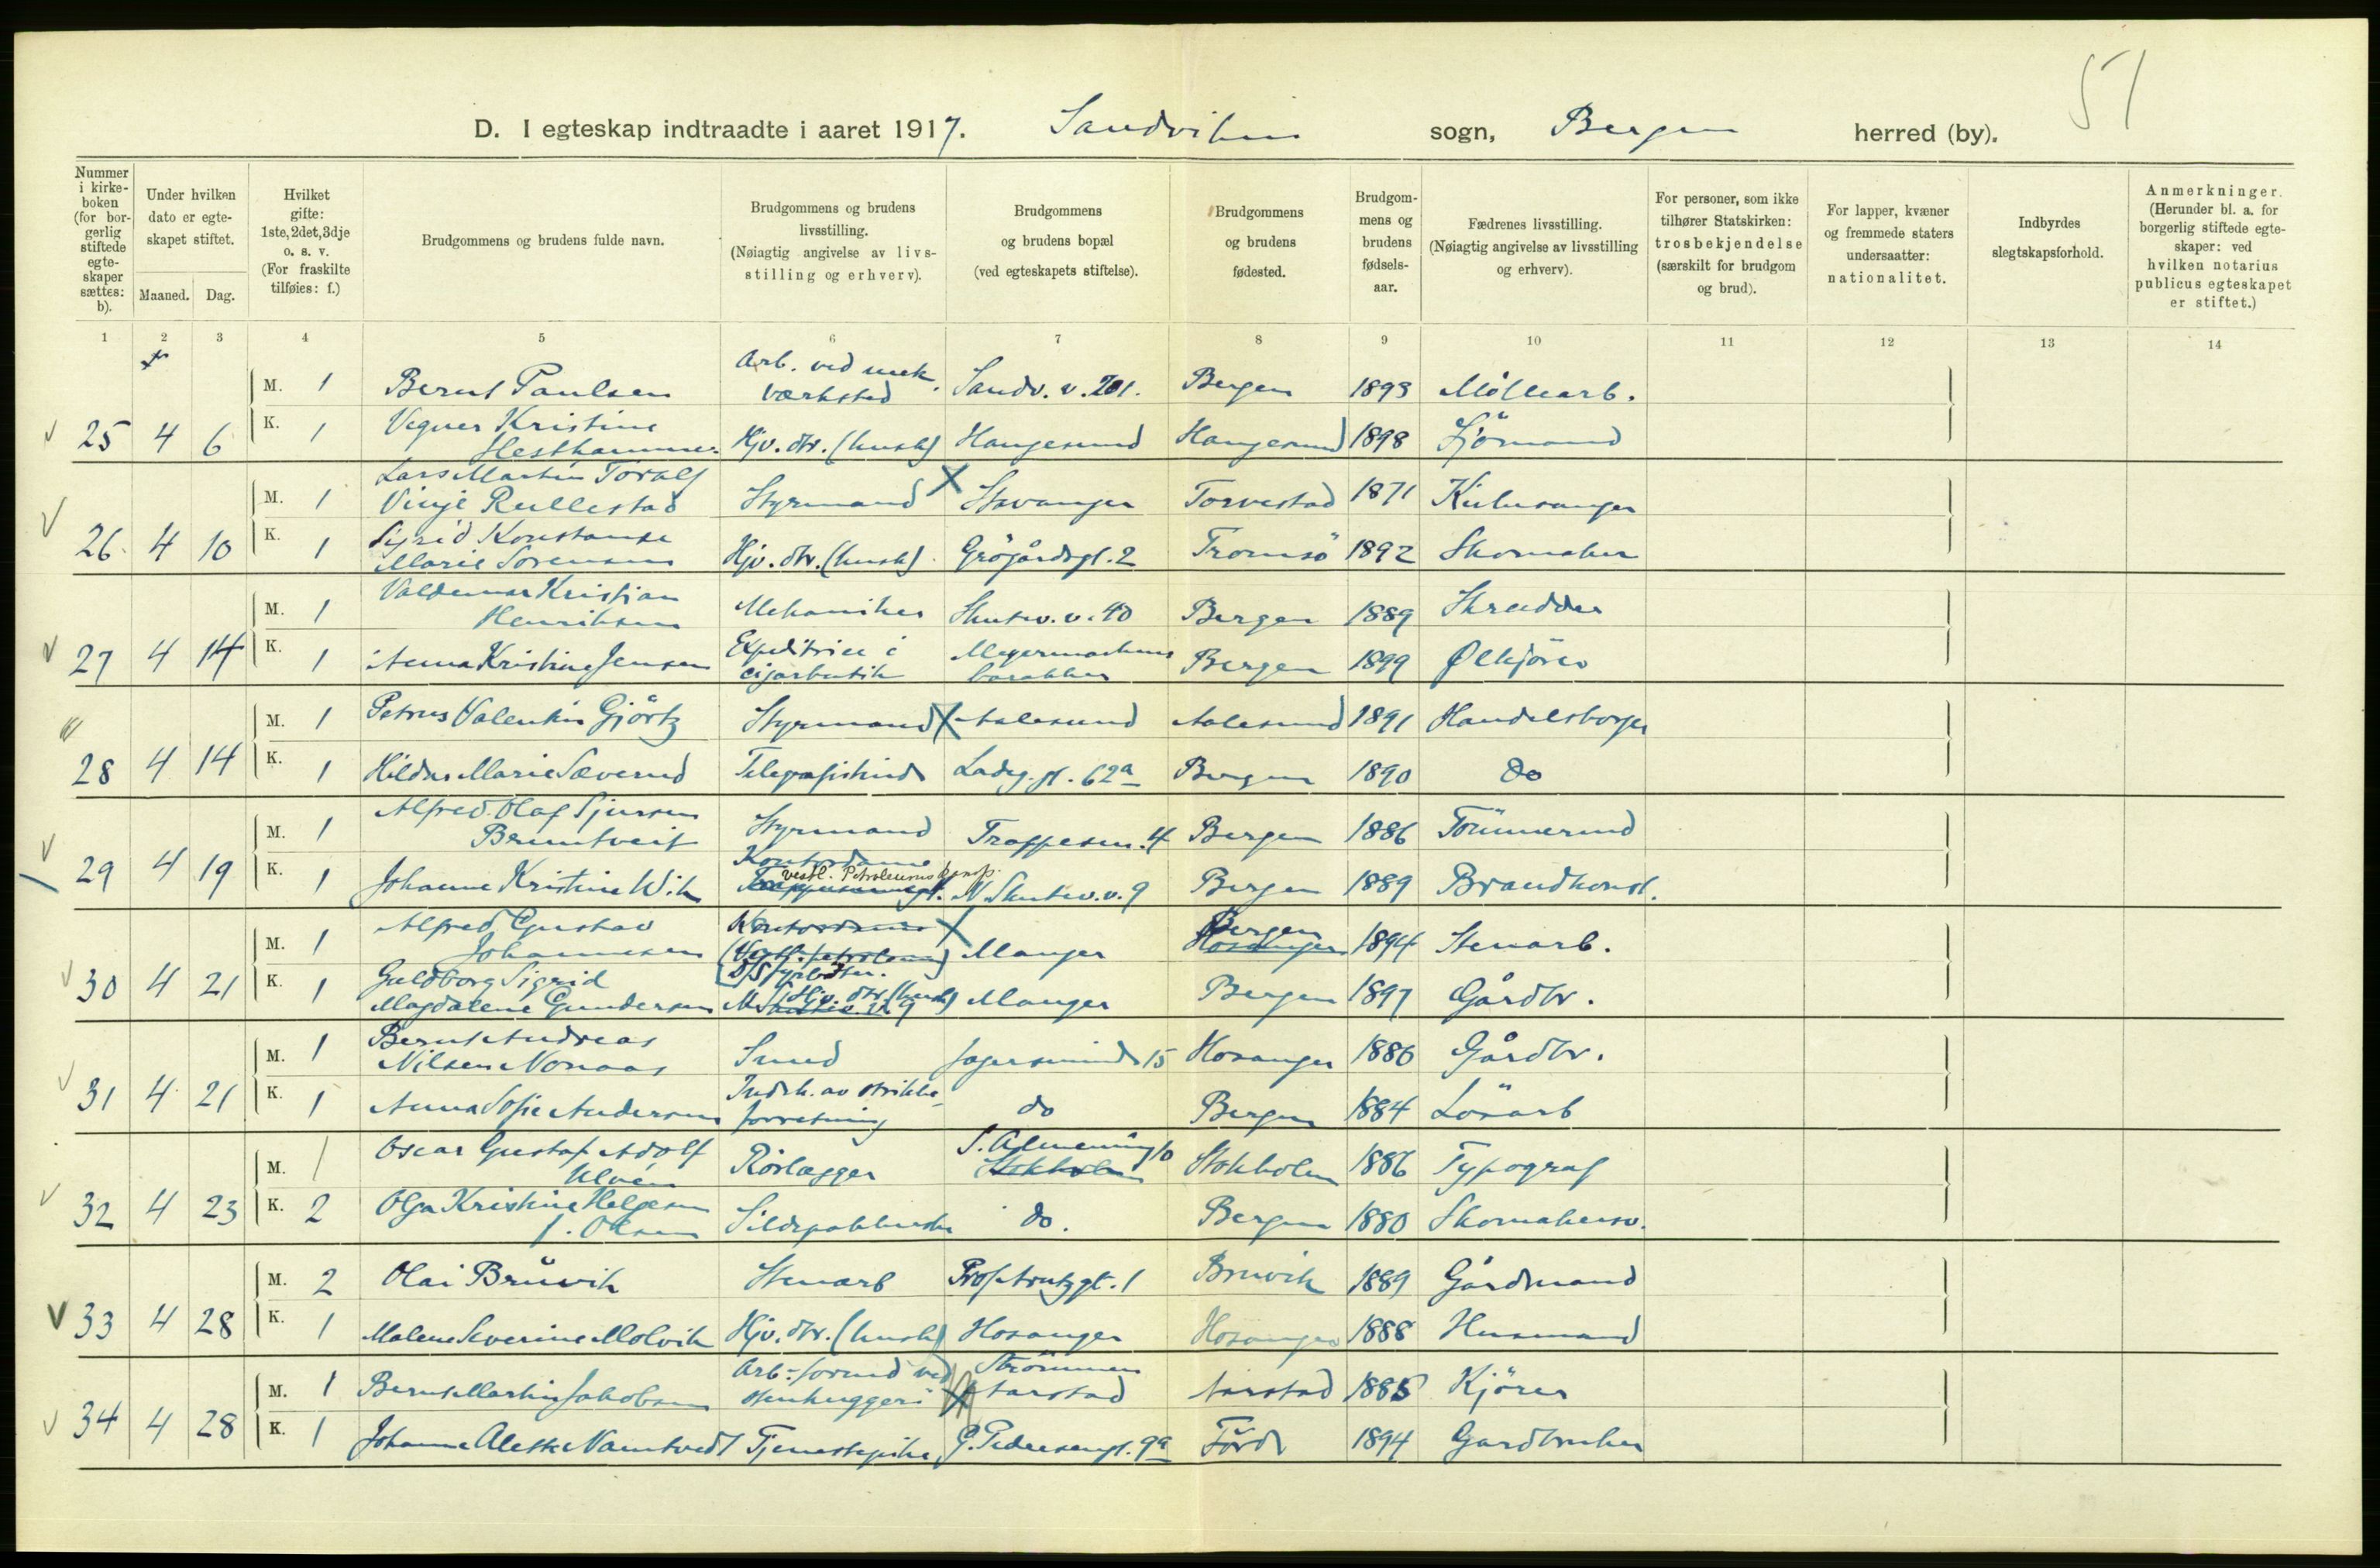 51
D. I egteskap indtraadte i aaret 1917. Sandviken sogn, Bergen herred (by).
Nummer i kirke-boken (for bor-gerlig stiftede egte-skaper sættes: b).
Under hvilken dato er egte-skapet stiftet.
Maaned. Dag.
Hvilket gifte: 1ste, 2det, 3dje o. s. v. (For fraskilte tilføies: f.)
Brudgommens og brudens fulde navn.
Brudgommens og brudens livsstilling. (Nøiagtig angivelse av livs-stilling og erhverv).
Brudgommens og brudens bopæl (ved egteskapets stiftelse).
Brudgommens og brudens fødested.
Brudgom-mens og brudens fødsels-aar.
Fædrenes livsstilling. (Nøiagtig angivelse av livsstilling og erhverv).
For personer, som ikke tilhører Statskirken: trosbekjendelse (særskilt for brudgom og brud).
For lapper, kvæner og fremmede staters undersaatter: nationalitet.
Indbyrdes slegtskapsforhold.
Anmerkninger. (Herunder bl. a. for borgerlig stiftede egte-skaper: ved hvilken notarius publicus egteskapet er stiftet.)
1 2 3 4 5 6 7 8 9 10 11 12 13 14
M. 1 Bernt Paulsen Arb. ved mek. værksted Sandv. v. 201. Bergen 1893 Möllearb.
25 4 6 K. 1 Vegner Kristine Hesthammer Hjv. dtr. (hush) Haugesund Haugesund 1898 Sjömand
M. 1 Lars Martin Toralf Vinje Rullestad Styrmand X Stavanger Torvestad 1871 Kirkesanger
26 4 10 K. 1 Sigrid Konstanse Marie Sorensen Hjv. dtr. (hush) Grögårdsgt. 2 Tromsö 1892 Skomaker
M. 1 Valdemar Kristian Henriksen Mekaniker Skutev. v. 40 Bergen 1889 Skrædder
27 4 14 K. 1 Anna Kristine Jensen Expeditrice i cigarbutik Meyermarkens barakker Bergen 1899 Ølkjörer
M. 1 Petrus Valentin Gjörtz Styrmand X Aalesund Aalesund 1891 Handelsborger
28 4 14 K. 1 Hildur Marie Sæverud Telegrafistinde Ladeg. gt. 62a Bergen 1890 Do
M. 1 Alfred Olaf Sjursen Bruntveit Styrmand Trappesm. 4 Bergen 1886 Tömmermd
29 4 19 K. 1 Johanne Kristine Wik Kontordame vestl. Petroleumskomp. N. Skutev. v. 9 Bergen 1889 Brandkonst.
M. 1 Alfred Gustav Johannesen Kontordame (Vestl. petroleum) D/S fyrbøter. X Manger Bergen Hosanger 1894 Stenarb.
30 4 21 K. 1 Guldborg Sigrid Magdalene Gundersen Hjv. dtr. (hush) Manger Bergen 1897 Gårdbr.
M. 1 Bernt Andreas Nilsen Nonaas Smed Jægersmind 15 Hosanger 1886 Gårdbr.
31 4 21 K. 1 Anna Sofie Andersen Indeh. av strikke-forretning do Bergen 1884 Lösarb
M. 1 Oscar Gustaf Adolf Ulvén Rörlægger S. Almenning 10 Stokholm Stokholm 1886 Typograf
32 4 23 K. 2 Olga Kristine Helgesen f. Olsen Sildepakkerske do. Bergen 1880 Skomakersv.
M. 2 Olai Bruvik Stenarb Prof. Arntzgt. 1 Bruvik 1889 Gårdmand
33 4 28 K. 1 Malene Severine Molvik Hjv. dtr. (hush) Hosanger Hosanger 1888 Husmand
M. 1 Bernt Martin Jakobsen Arb.-formd ved stenhuggeri Strömmen X Aarstad Aarstad 1885 Kjörer
34 4 28 K. 1 Johanne Aleske Namtvedt Tjenestepike G. Pedersensgt. 9a Förde 1894 Gardbruker